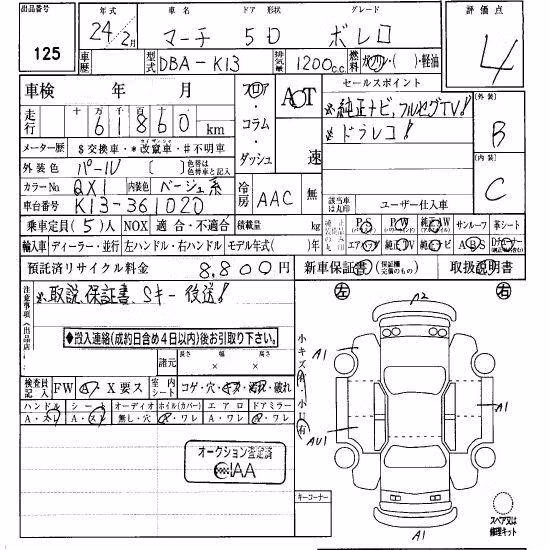 出品番号 年式 車名 ドア 形状 グレード 評価点
125 24年2月 マーチ 5D ボレロ 4
車歴 型式 DBA-K13 排気量 1200c.c. 燃料 ガソリン・( )・軽油
車検 年 月 フロア・コラム・ダッシュ AOT 速 セールスポイント 外装 B
走行 十万 万 千 百 十 61860 km ※純正ナビ、フルセグTV!
メーター歴 $交換車・*改竄車・#不明車 ※ドラレコ! 内装 C
外装色 パール ( ) 色替は色替車と記入
カラーNo QX1 内装色 ベージュ系 冷房 AAC 無 該当車は丸印 ユーザー仕入車
車台番号 K13-361020
乗車定員(5)人 NOX 適合・不適合 積載量 kg PS PW 純正AW サンルーフ 革シート
輸入車 ディーラー・並行 左ハンドル・右ハンドル モデル年式( )年 エアB 純正TV 純正ナビ ABS
預託済リサイクル料金 8,800円 新車保証書(保証継交換のもの) 取扱説明書
注意事項(出品店) ※取説、保証書、Sキー後送! 左 右
◆搬入連絡(成約日含め4日以内)後お引取り下さい。
諸元 長さ × 幅 × 高さ
検査員記入 FW X要ス 室内シート コゲ・穴・キズ・汚れ・破れ 小キズ有・小凹有
ハンドル シート オーディオ ホイル(カバー) エアロ ドアミラー
A・スレ A・スレ 無し・穴 キズ・ワレ キズ・ワレ キズ・ワレ
オークション査定済
IAA
キーコーナー
A2
A1
A1
AU1
A1
スペア又は修理キット